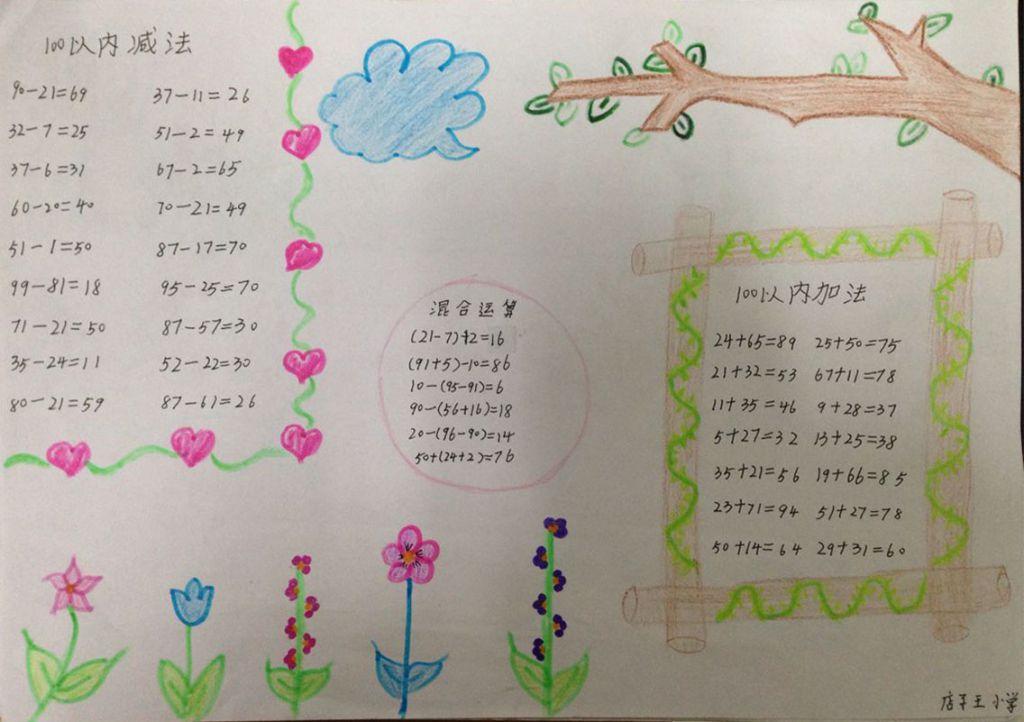 100以内减法
90-21=69 37-11=26
32-7=25 51-2=49
37-6=31 67-2=65
60-20=40 70-21=49
51-1=50 87-17=70
99-81=18 95-25=70
71-21=50 87-57=30
35-24=11 52-22=30
80-21=59 87-61=26
混合运算
(21-7)+2=16
(91+5)-10=86
10-(95-91)=6
90-(56+16)=18
20-(96-90)=14
50+(24+2)=76
100以内加法
24+65=89 25+50=75
21+32=53 67+11=78
11+35=46 9+28=37
5+27=32 13+25=38
35+21=56 19+66=85
23+71=94 51+27=78
50+14=64 29+31=60
店子王小学